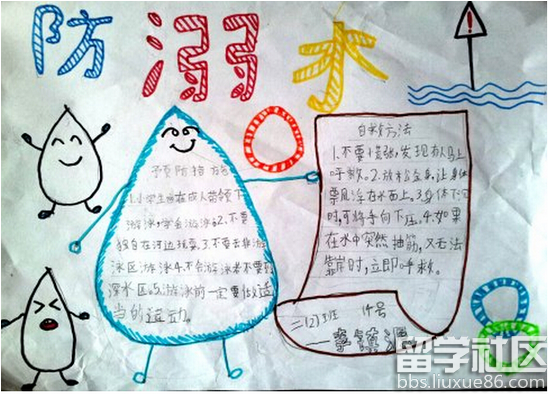 防溺水
预防措施
1.小学生在成人带领下
游泳,学会游泳。2.不要
独自在河边玩耍。3.不要去非游
泳区游泳4.不会游泳不要到
深水区。5.游泳前一定要做适
当的运动。
自救方法
1.不要慌张,发现有人马上
呼救。2.放松全身,让身体
飘浮在水面上。3.身体下沉
时,可将手向下压。4.如果
在水中突然抽筋,又无法
靠岸时,立即呼救。
二(2)班 14号
李
留学社区
bbs.liuxue86.com